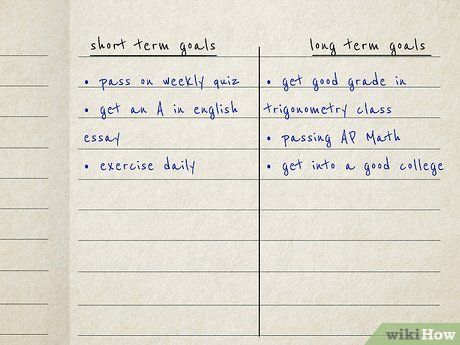 short term goals
• pass on weekly quiz
• get an A in english
essay
• exercise daily
long term goals
• get good grade in
trigonometry class
• passing AP Math
• get into a good college
wikiHow